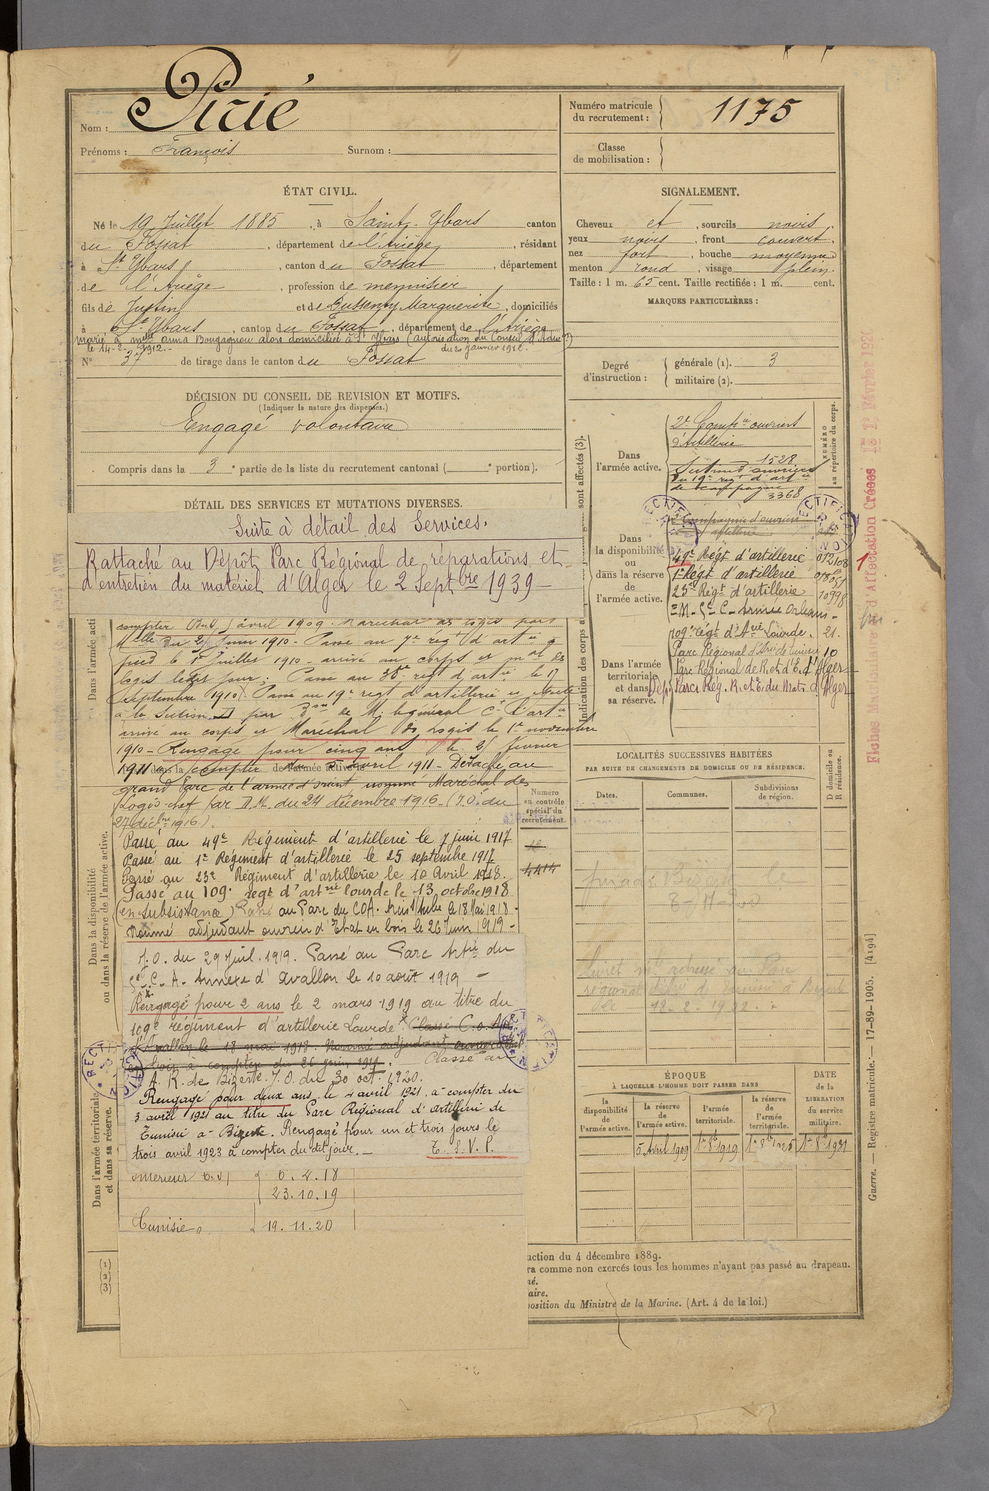 Nom : Pirié
Prénoms : François Surnom :
Numéro matricule du recrutement : 1175
Classe de mobilisation :
ÉTAT CIVIL.
Né le 19 Juillet 1885, à Saint-Ybars canton
du Fossat, département de l'Ariège, résidant
à St Ybars, canton du Fossat, département
de l'Ariège, profession de menuisier
fils de Justin et de Bussenty Marguerite, domiciliés
à St Ybars, canton du Fossat, département de l'Ariège
Marié à Melle Anna Bougagnou alors domiciliée à St Ybars (autorisation du Conseil d'
le 14-2-1912.- du 20 janvier 1912.
N° 37 de tirage dans le canton du Fossat
DÉCISION DU CONSEIL DE REVISION ET MOTIFS.
(Indiquer la nature des dispenses.)
Engagé volontaire
Compris dans la 3e partie de la liste du recrutement cantonal ( e portion).
DÉTAIL DES SERVICES ET MUTATIONS DIVERSES.
Suite à détail des Services.
Rattaché au Dépôt Parc Régional de réparations et
d'entretien du matériel d'Alger le 2 Septbre 1939-
compter du 5 avril 1909. Maréchal des logis par
du 2 juin 1910- Passé au 7e régt d'artie à
pied le 1er Juillet 1910 - arrivé au corps et mal des
logis le dit jour; Passé au 38e régt d'artie le 17
septembre 1910. Passé au 19e regt d'artillerie
à la Section par Don de M. le général Ct l'artie
arrivé au corps et Maréchal des logis le 1er novembre
1910 - Rengagé pour cinq ans le 2 février
1911 à compter du 5 avril 1911 - Détaché au
grand Parc de l'armée d'orient nommé Maréchal des
Logis chef par D.M. du 24 décembre 1916. (J.O. du
27 décbre 1916).
Passé au 49e Régiment d'artillerie le 7 juin 1917
Passé au 1er Régiment d'artillerie le 25 septembre 1917
Passé au 23e Régiment d'artillerie le 10 avril 1918.
Passé au 109e regt d'artrie lourde le 13 octobre 1918
(en subsistance) Passé au Parc du COA. Arcis s/ Aube le 18 Mai 1918 -
Nommé adjudant ouvrier d'Etat en bois le 26 Juin 1919 -
J.O. du 29 Juil. 1919. Passé au Parc Artie du
G.C.A. Annexe d'Avallon le 10 août 1919 -
Rengagé pour 2 ans le 2 mars 1919 au titre du
109e régiment d'artillerie Lourde. Classé C.O.A.
d'Avallon le 18 mai 1918. Nommé adjudant ouvrier
en bois à compter du 26 juin 1919. Classé au
A. R. de Bizerte. J.O. du 30 oct. 1920.
Rengagé pour deux ans le 4 avril 1921 à compter du
3 avril 1921 au titre du Parc Régional d'artillerie de
Tunisie à Bizerte. Rengagé pour un et trois jours le
trois avril 1923 à compter du dit jour.-
T. S. V. P.
Intérieur 6.4.18
23.10.19
Tunisie 19.11.20
SIGNALEMENT.
Cheveux et, sourcils noirs
yeux noirs, front couvert,
nez fort, bouche moyenne
menton rond, visage plein.
Taille : 1 m. 65 cent. Taille rectifiée : 1 m. cent.
MARQUES PARTICULIÈRES :
Degré d'instruction : générale (1). 3
militaire (2).
Indication des corps sont affectés (3).
NUMÉRO au répertoire du corps.
Dans l'armée active.
2e Compie ouvriers
d'artillerie
1528
Section d'ouvriers
du 19e regt d'artie
de campagne
3368
Dans la disponibilité ou dans la réserve de l'armée active.
2 Compagnie d'ouvriers
artillerie
49e Régt d'artillerie 012108
1er Régt d'artillerie
23e Régt d'artillerie 10998
109e régt d'Arie Lourde. 21.
Dans l'armée territoriale et dans sa réserve.
Parc Régional d'Arie de Tunisie 10
Parc Régional de R. et d'E. d'Alger
Dép. Parc Rég. R. et E. du Mat. d'Alger
Fiches Matricule d'Affectation Créées le 1er Février 1927
LOCALITÉS SUCCESSIVES HABITÉES
PAR SUITE DE CHANGEMENTS DE DOMICILE OU DE RÉSIDENCE.
D domicile ou R résidence.
Dates. Communes. Subdivisions de région.
Livret mle adressé au Parc
régional d'Arie de Tunisie à Bizerte
le 12-2-1922.
Numéro au contrôle spécial du recrutement.
4414
ÉPOQUE
À LAQUELLE L'HOMME DOIT PASSER DANS
DATE de la LIBÉRATION du service militaire.
la disponibilité de l'armée active. la réserve de l'armée active. l'armée territoriale. la réserve de l'armée territoriale.
5 Avril 1909 1er 8bre 1919 1er 8bre 1925 1er 8bre 1931
Dans l'armée acti
Dans la disponibilité ou dans la réserve de l'armée active.
Dans l'armée territoriale et dans sa réserve.
(1)
(2)
(3)
uction du 4 décembre 1889.
ra comme non exercés tous les hommes n'ayant pas passé au drapeau.
né.
aire.
position du Ministre de la Marine. (Art. 4 de la loi.)
Guerre. — Registre matricule. — 17-89-1905. [4194]